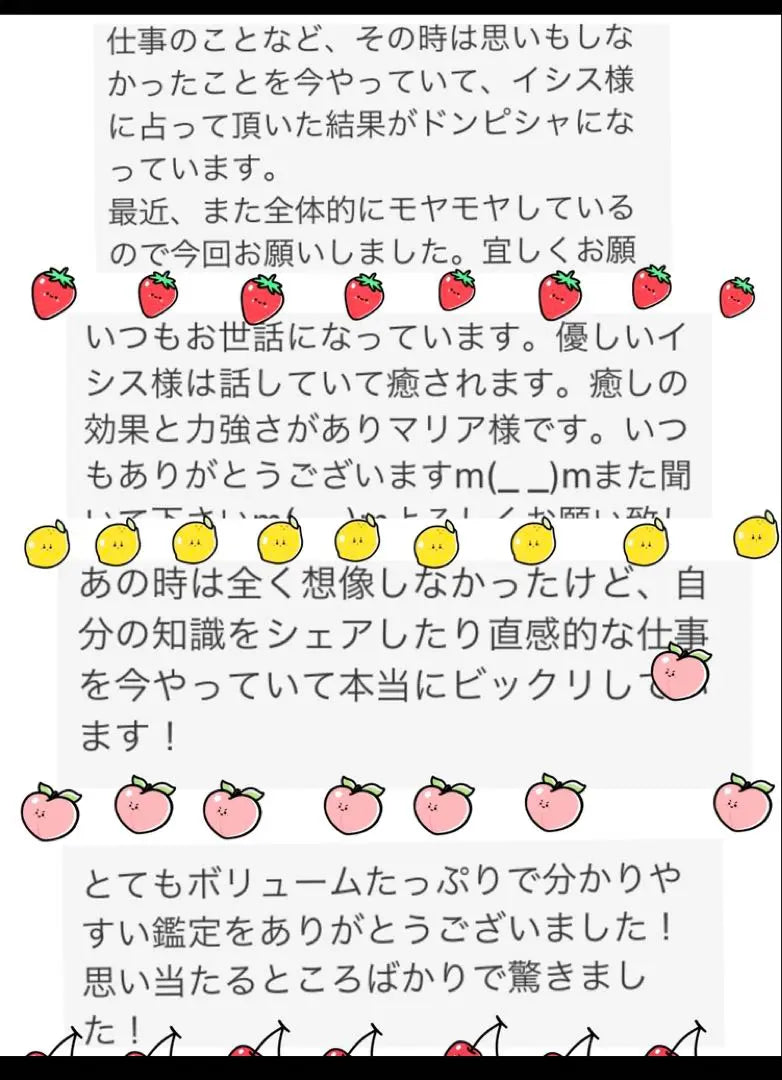 仕事のことなど、その時は思いもしな
かったことを今やっていて、イシス様
に占って頂いた結果がドンピシャにな
っています。
最近、また全体的にモヤモヤしている
ので今回お願いしました。宜しくお願
いつもお世話になっています。優しいイ
シス様は話していて癒されます。癒しの
効果と力強さがありマリア様です。いつ
もありがとうございますm(_ _)mまた聞
いて下さいm(_ _)mよろしくお願い致し
あの時は全く想像しなかったけど、自
分の知識をシェアしたり直感的な仕事
を今やっていて本当にビックリしてい
ます！
とてもボリュームたっぷりで分かりや
すい鑑定をありがとうございました！
思い当たるところばかりで驚きまし
た！